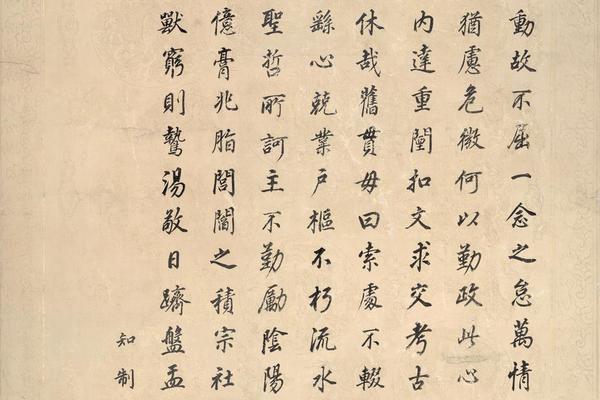 動故不屈一念之怠萬情
猶慮危微何以勤政此心
内達重闉扣文求交考古
休哉舊貫毋曰索處不輟
繇心兢業戶樞不朽流水
聖哲所訶主不勤勵陰陽
億膏兆脂閭閻之積宗社
獸窮則鷙湯敬日躋盤盂
知制